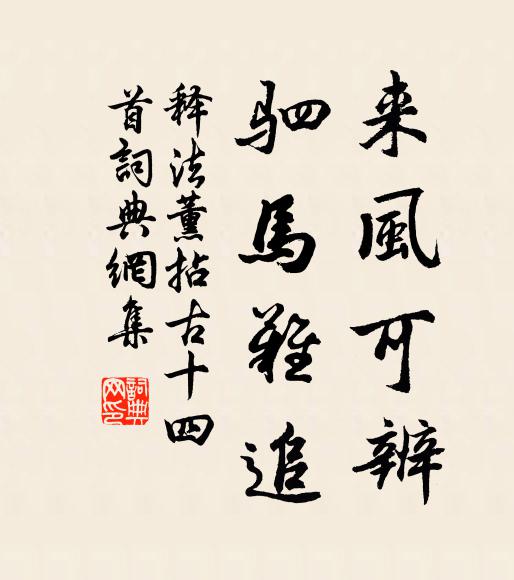 来風可辨
驷馬難追
释法薰拈古十四
首詞典網集
詞典網印